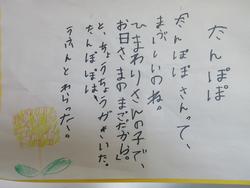 たんぽぽ
たんぽぽさんって、
まぶしいのね。
ひまわりさんの子で、
お日さまのまごだから。」
と、ちょうちょうがきいた。
たんぽぽは、
うふんとわらった。